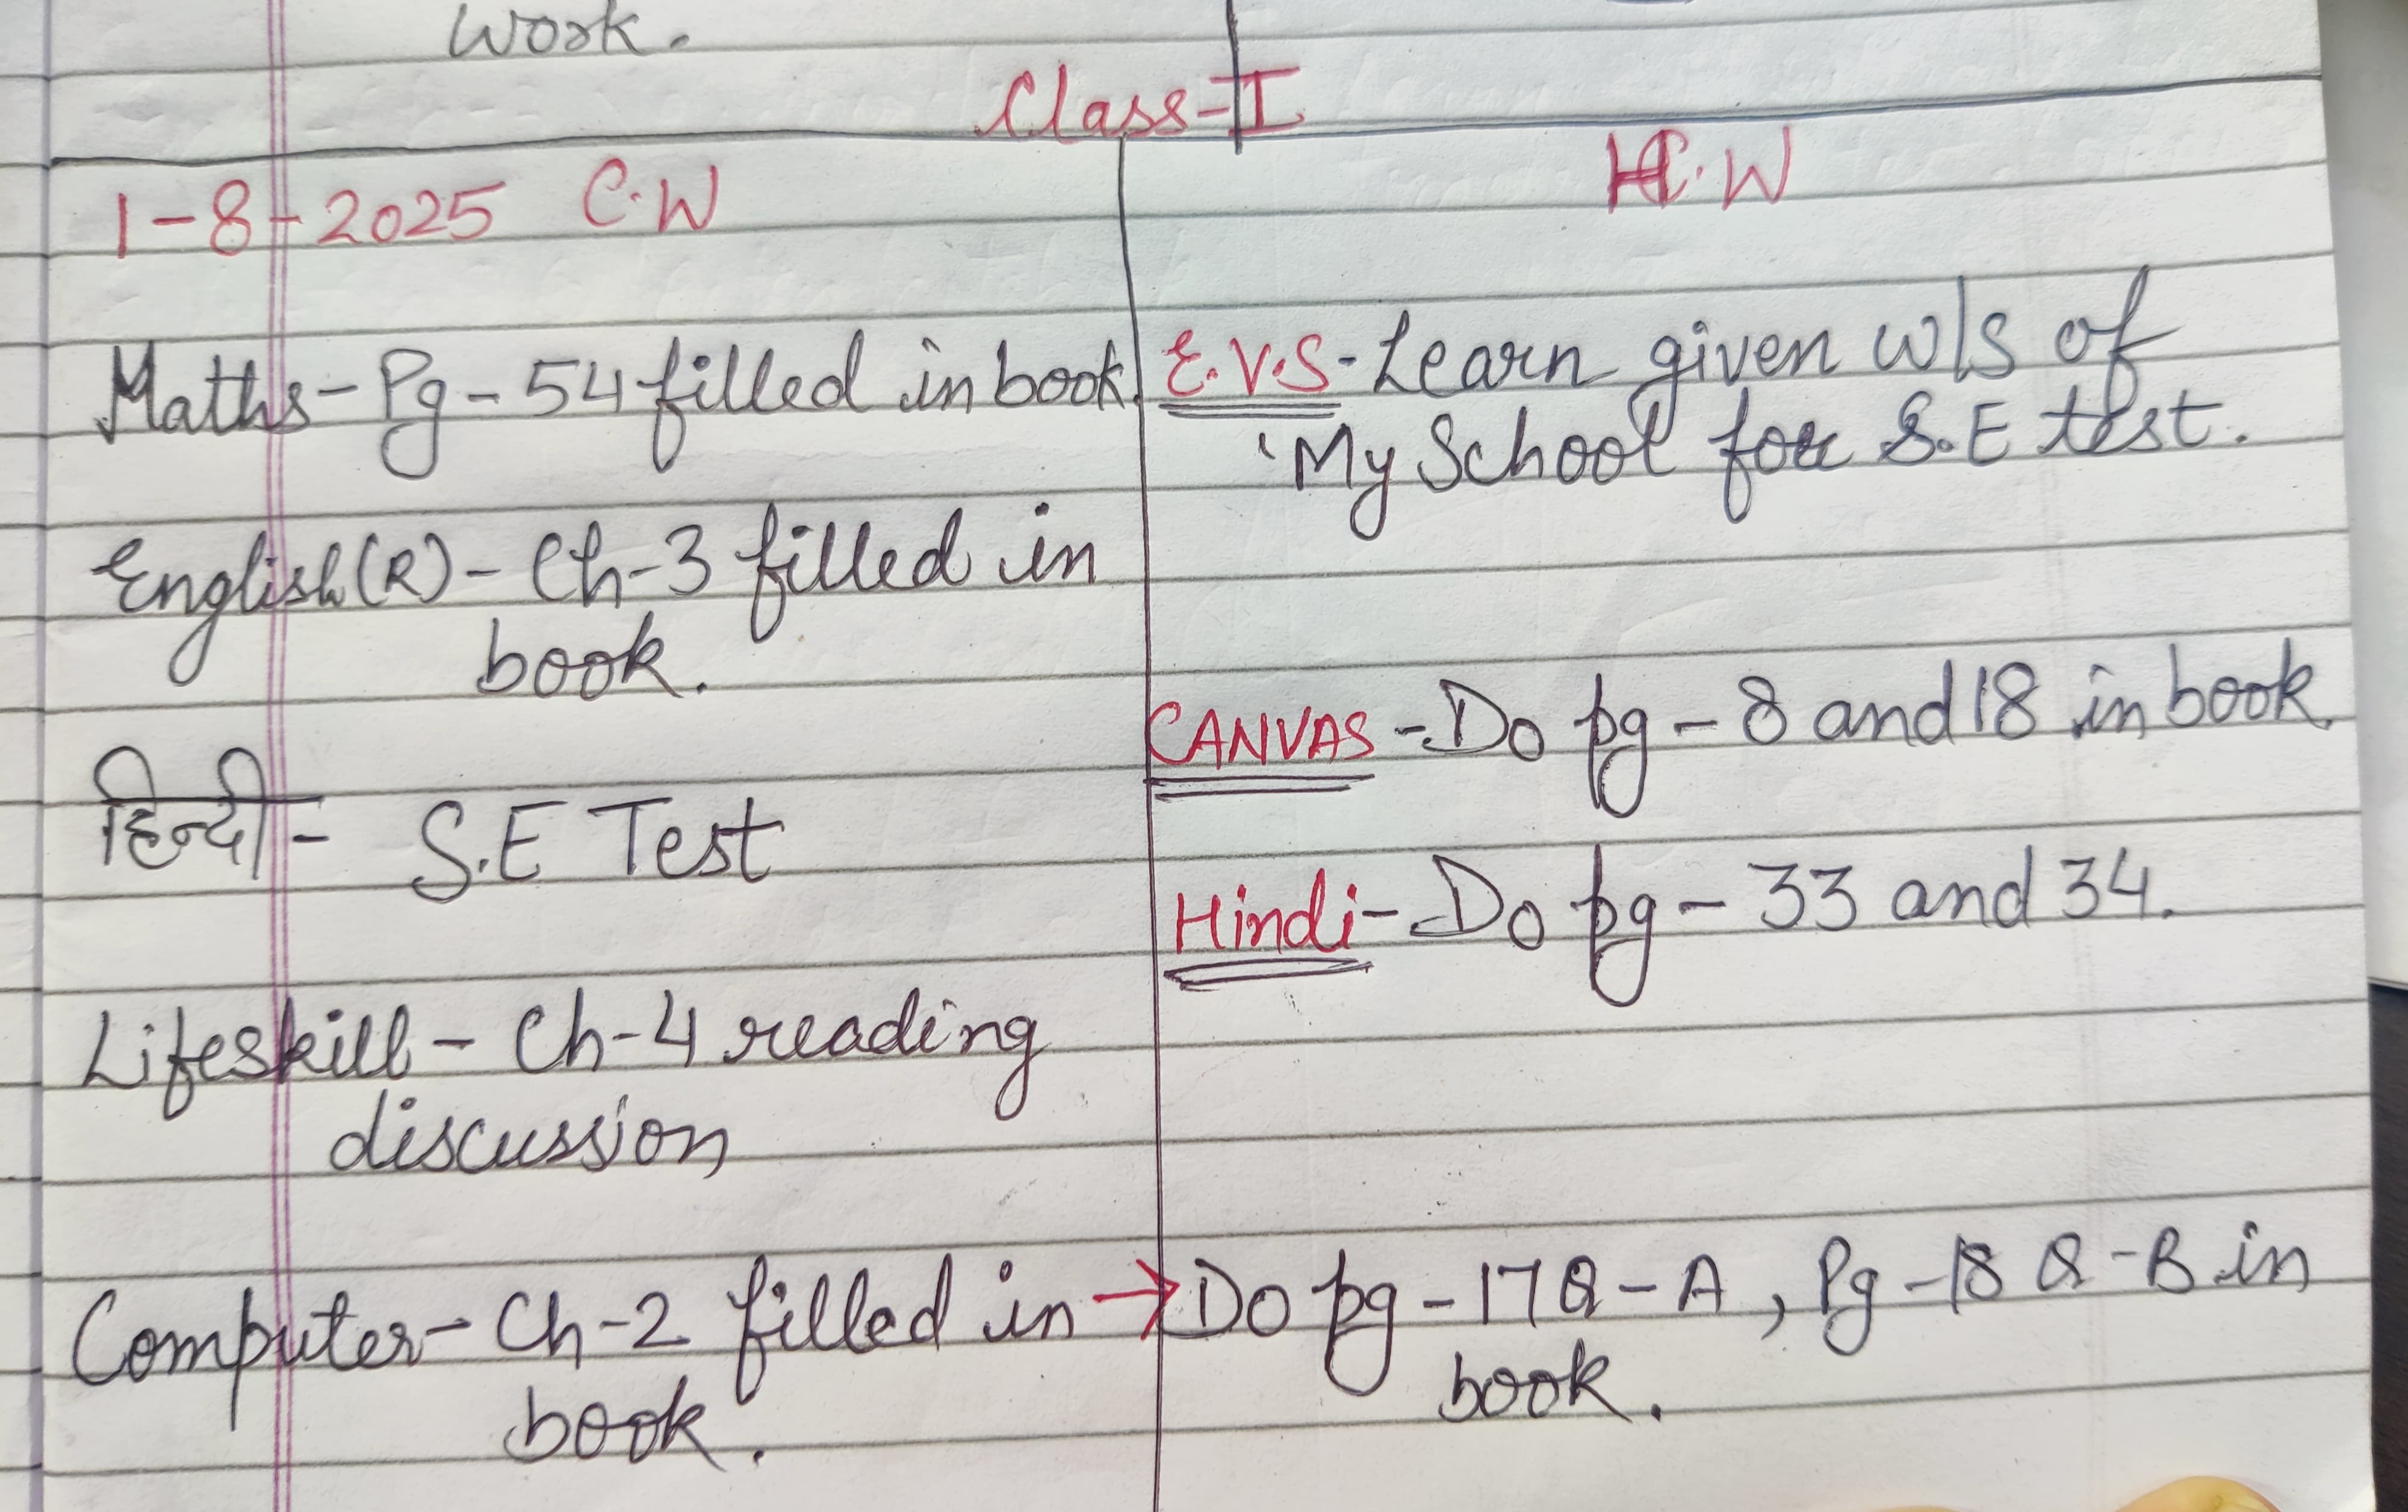 Work.
Class-I
1-8-2025 C.W
H.W
Maths- Pg- 54 filled in book.
English(R)- Ch-3 filled in
book.
हिन्दी- S.E Test
Lifeskill- Ch-4 reading
discussion
Computer- Ch-2 filled in →
book.
E.V.S- Learn given w/s of
'My School for S.E test.
CANVAS- Do pg- 8 and 18 in book.
Hindi- Do pg- 33 and 34.
Do pg- 17 Q- A, Pg-18 Q-B in
book.